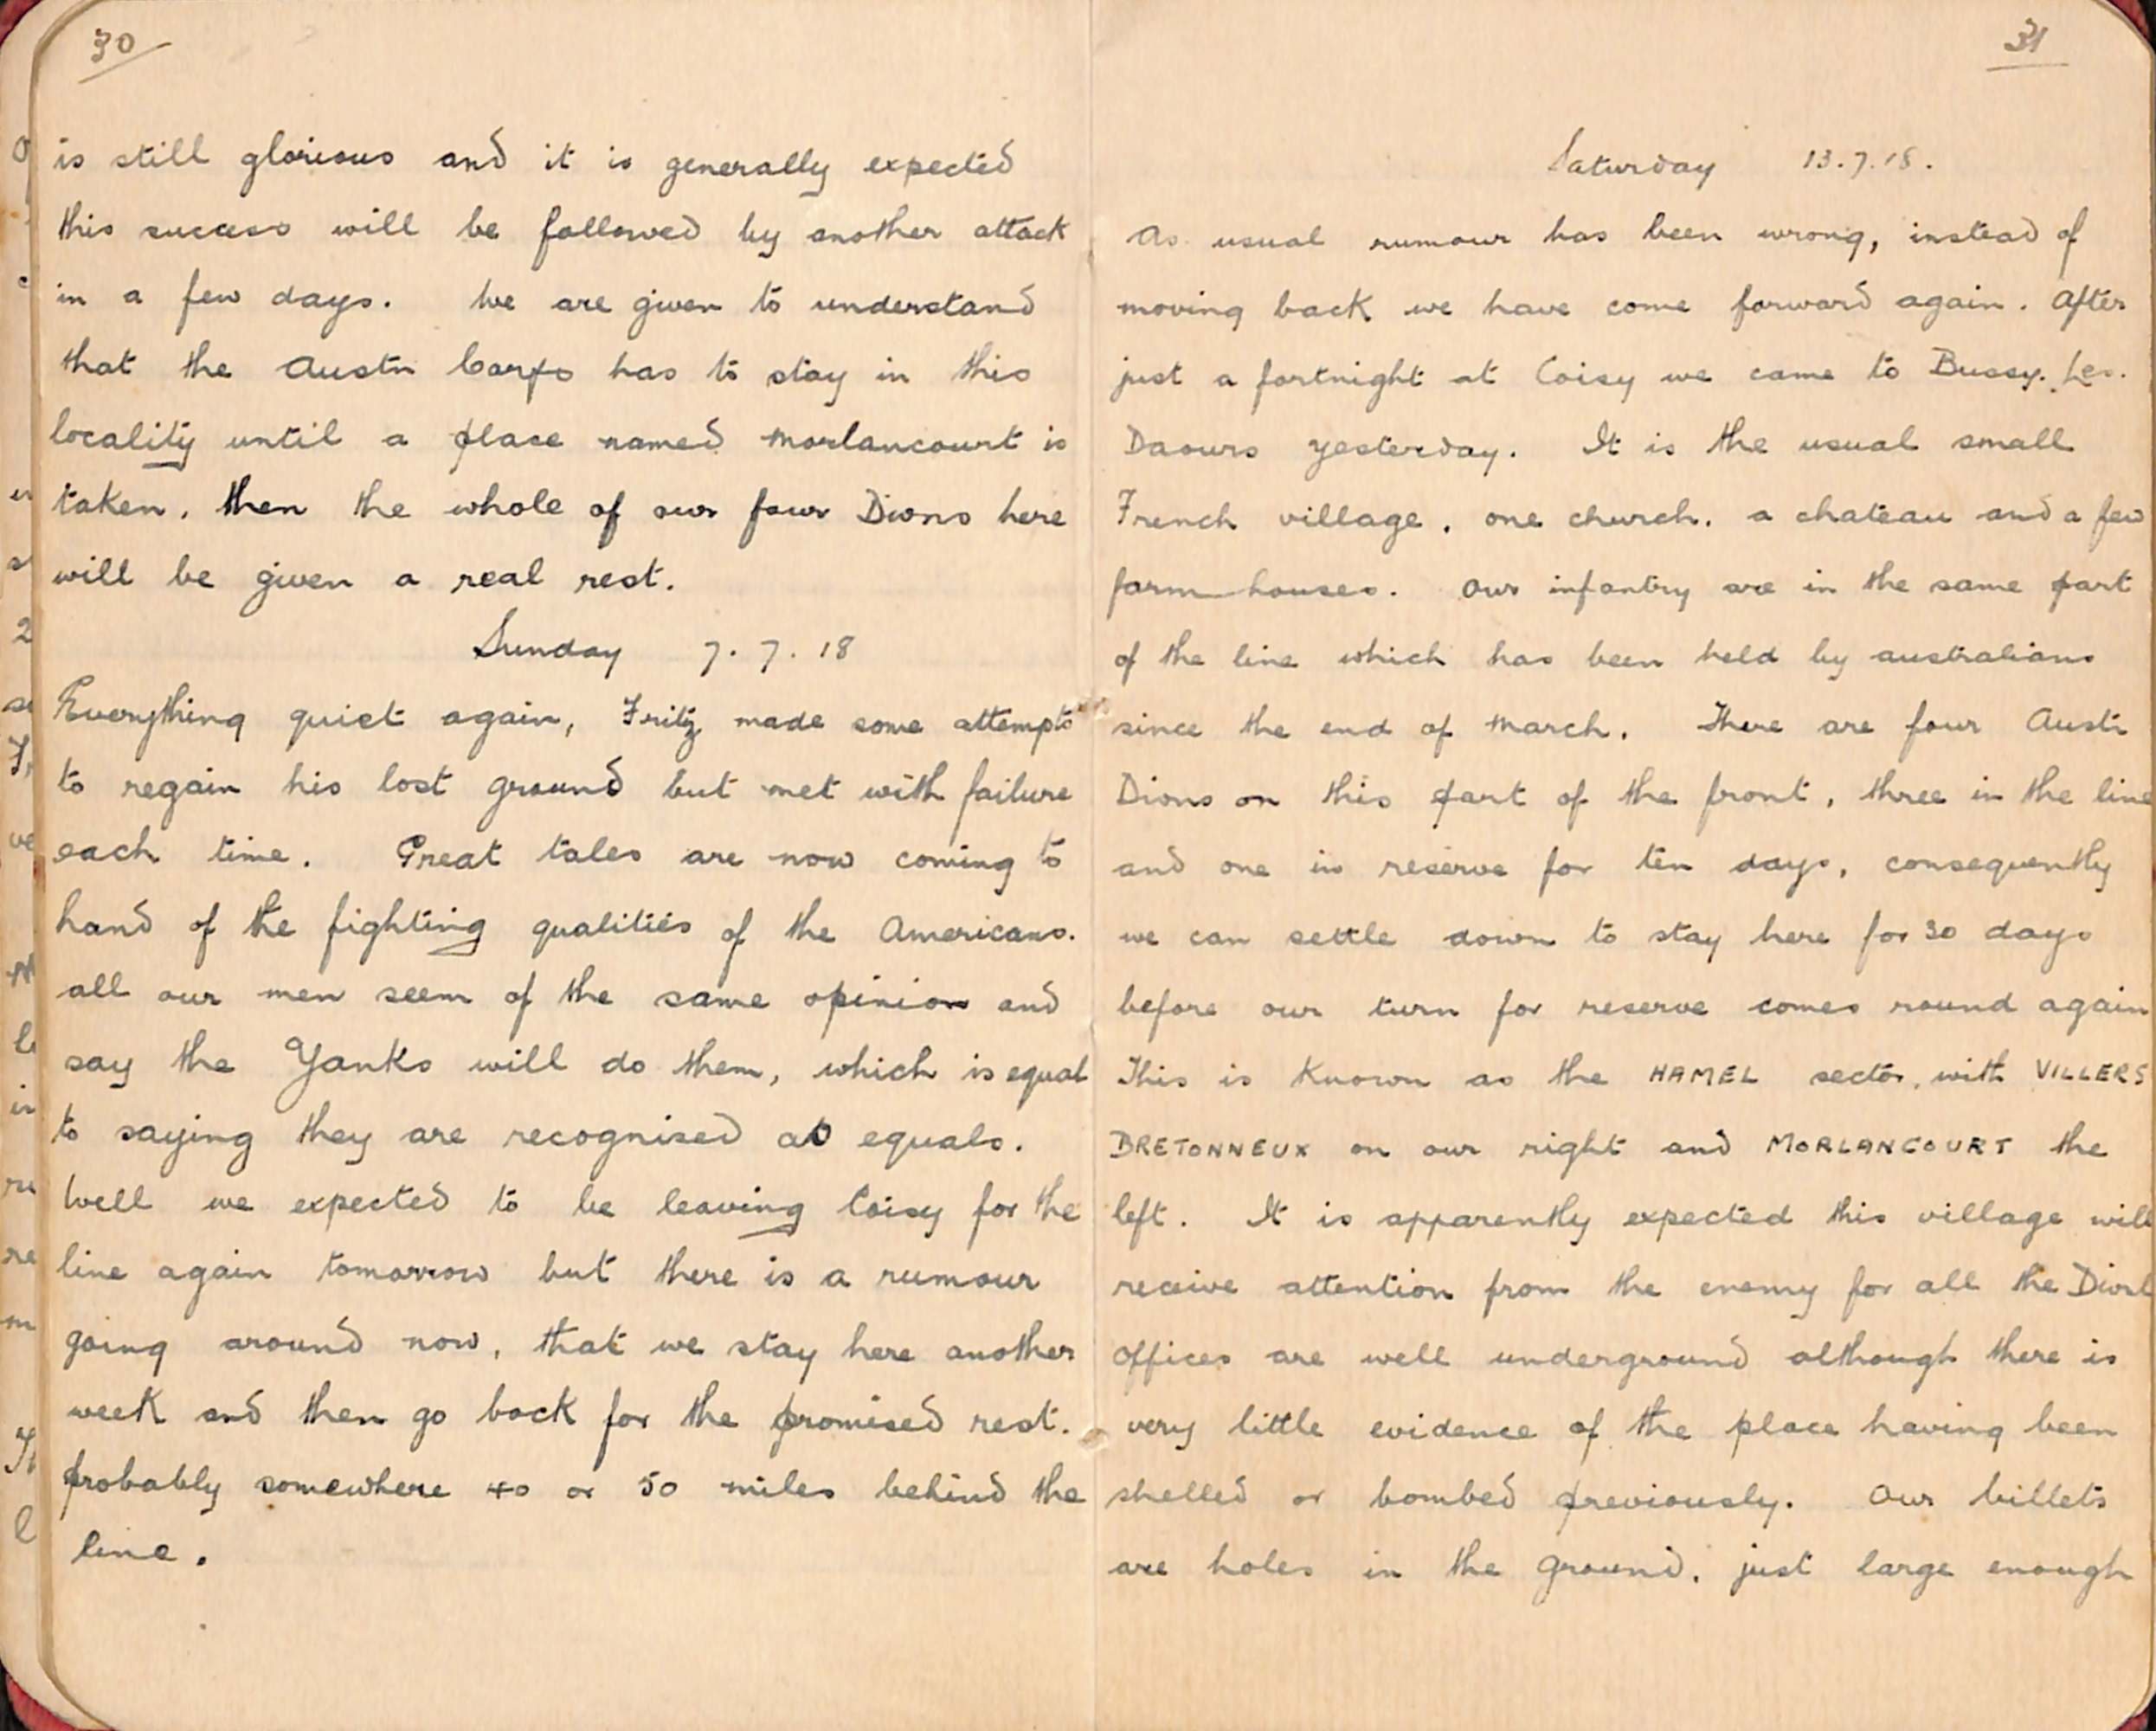 30
is still glorious and it is generally expected
this success will be followed by another attack
in a few days. We are given to understand
that the Austn Corps has to stay in this
locality until a place named Morlancourt is
taken, then the whole of our four Divns here
will be given a real rest.
Sunday 7.7.18
Everything quiet again, Fritz made some attempts
to regain his lost ground but met with failure
each time. Great tales are now coming to
hand of the fighting qualities of the Americans.
all our men seem of the same opinion and
say the Yanks will do them, which is equal
to saying they are recognised as equals.
Well we expected to be leaving Coisy for the
line again tomorrow but there is a rumour
going around now, that we stay here another
week and then go back for the promised rest.
probably somewhere 40 or 50 miles behind the
line.
31
Saturday 13.7.18.
As usual rumour has been wrong, instead of
moving back we have come forward again. After
just a fortnight at Coisy we came to Bussy. Les.
Daours yesterday. It is the usual small
French village, one church, a chateau and a few
farm houses. Our infantry are in the same part
of the line which has been held by australians
since the end of March. There are four Austn
Divns on this part of the front, three in the line
and one in reserve for ten days, consequently
we can settle down to stay here for 30 days
before our turn for reserve comes round again
This is known as the HAMEL sector, with VILLERS
BRETONNEUX on our right and MORLANCOURT the
left. It is apparently expected this village will
receive attention from the enemy for all the Divnl
offices are well underground although there is
very little evidence of the place having been
shelled or bombed previously. Our billets
are holes in the ground, just large enough